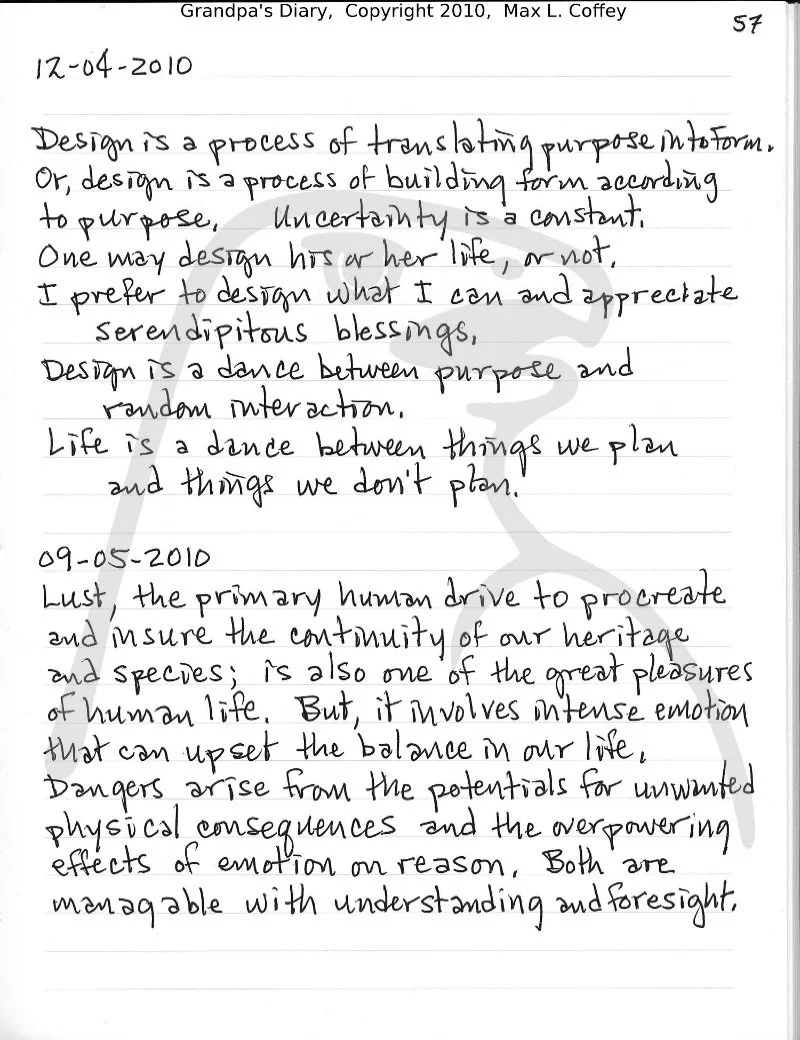 Grandpa's Diary, Copyright 2010, Max L. Coffey
57
12-04-2010
Design is a process of translating purpose into form.
Or, design is a process of building form according
to purpose. Uncertainty is a constant.
One may design his or her life, or not.
I prefer to design what I can and appreciate
serendipitous blessings.
Design is a dance between purpose and
random interaction.
Life is a dance between things we plan
and things we don't plan.
09-05-2010
Lust, the primary human drive to procreate
and insure the continuity of our heritage
and species; is also one of the great pleasures
of human life. But, it involves intense emotion
that can upset the balance in our life.
Dangers arise from the potentials for unwanted
physical consequences and the overpowering
effects of emotion on reason. Both are
managable with understanding and foresight.